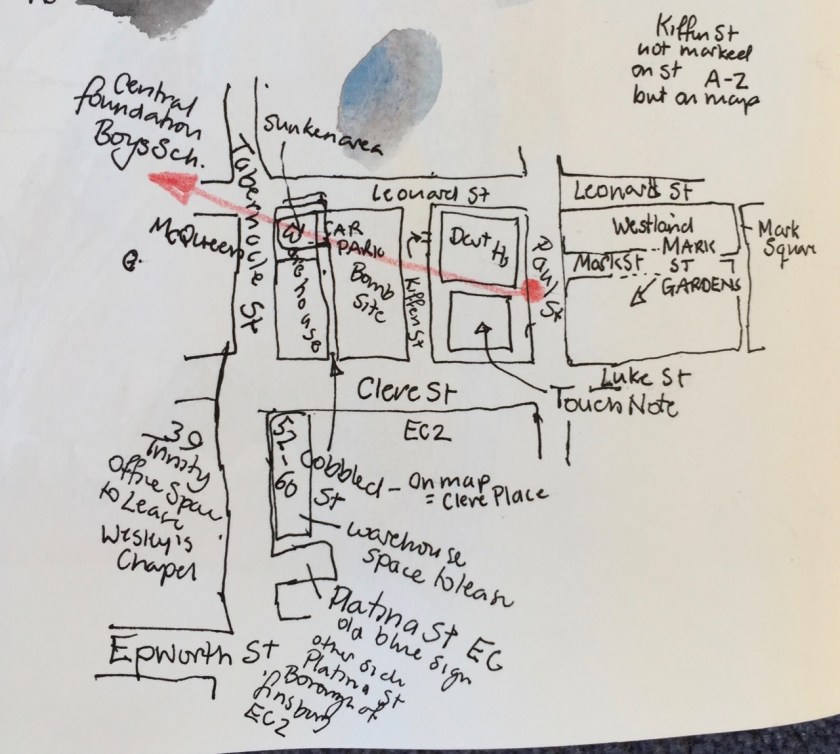 Kiffin St
not marked
on St A-Z
but on map
Central
foundation
Boys Sch.
sunken area
Tabernacle St
Leonard St
Leonard St
McQueen
CAR
PARK
Bomb
Site
Warehouse
Kiffin St
Paul St
Westland
Mark St
MARK
ST
GARDENS
Mark
Square
Luke St
Touch Note
Clere St
EC2
52-60
Cobbled
St
- On map
= Clere Place
39
Trinity
Office Space
to Lease
Wesley's
Chapel
warehouse
space to lease
Platina St EC
old blue sign
other side
Platina St
Borough of
finsbury
EC2
Epworth St